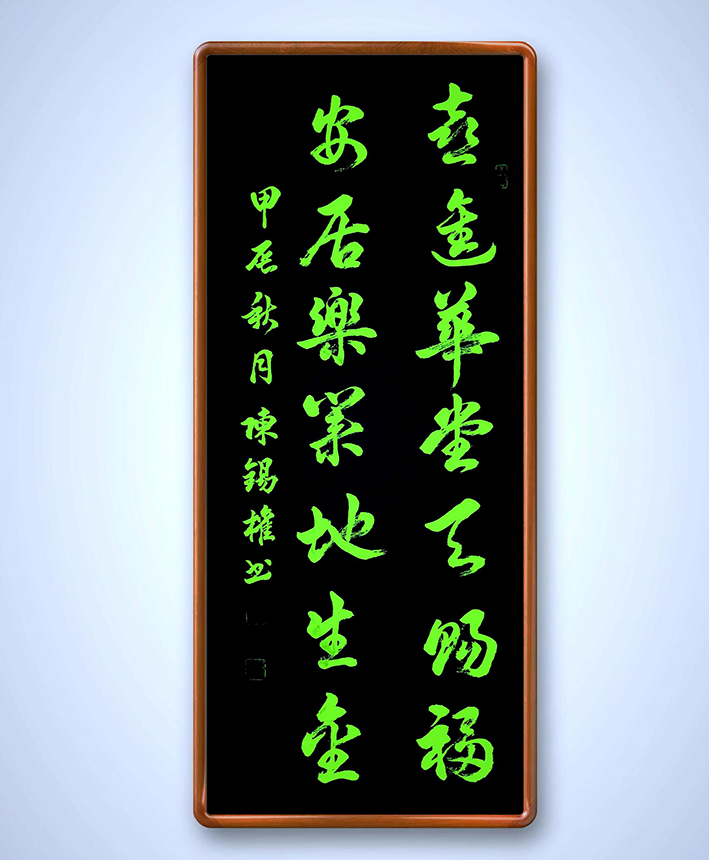 喜進華堂天賜福
安居樂業地生金
甲辰秋月陳錫權書